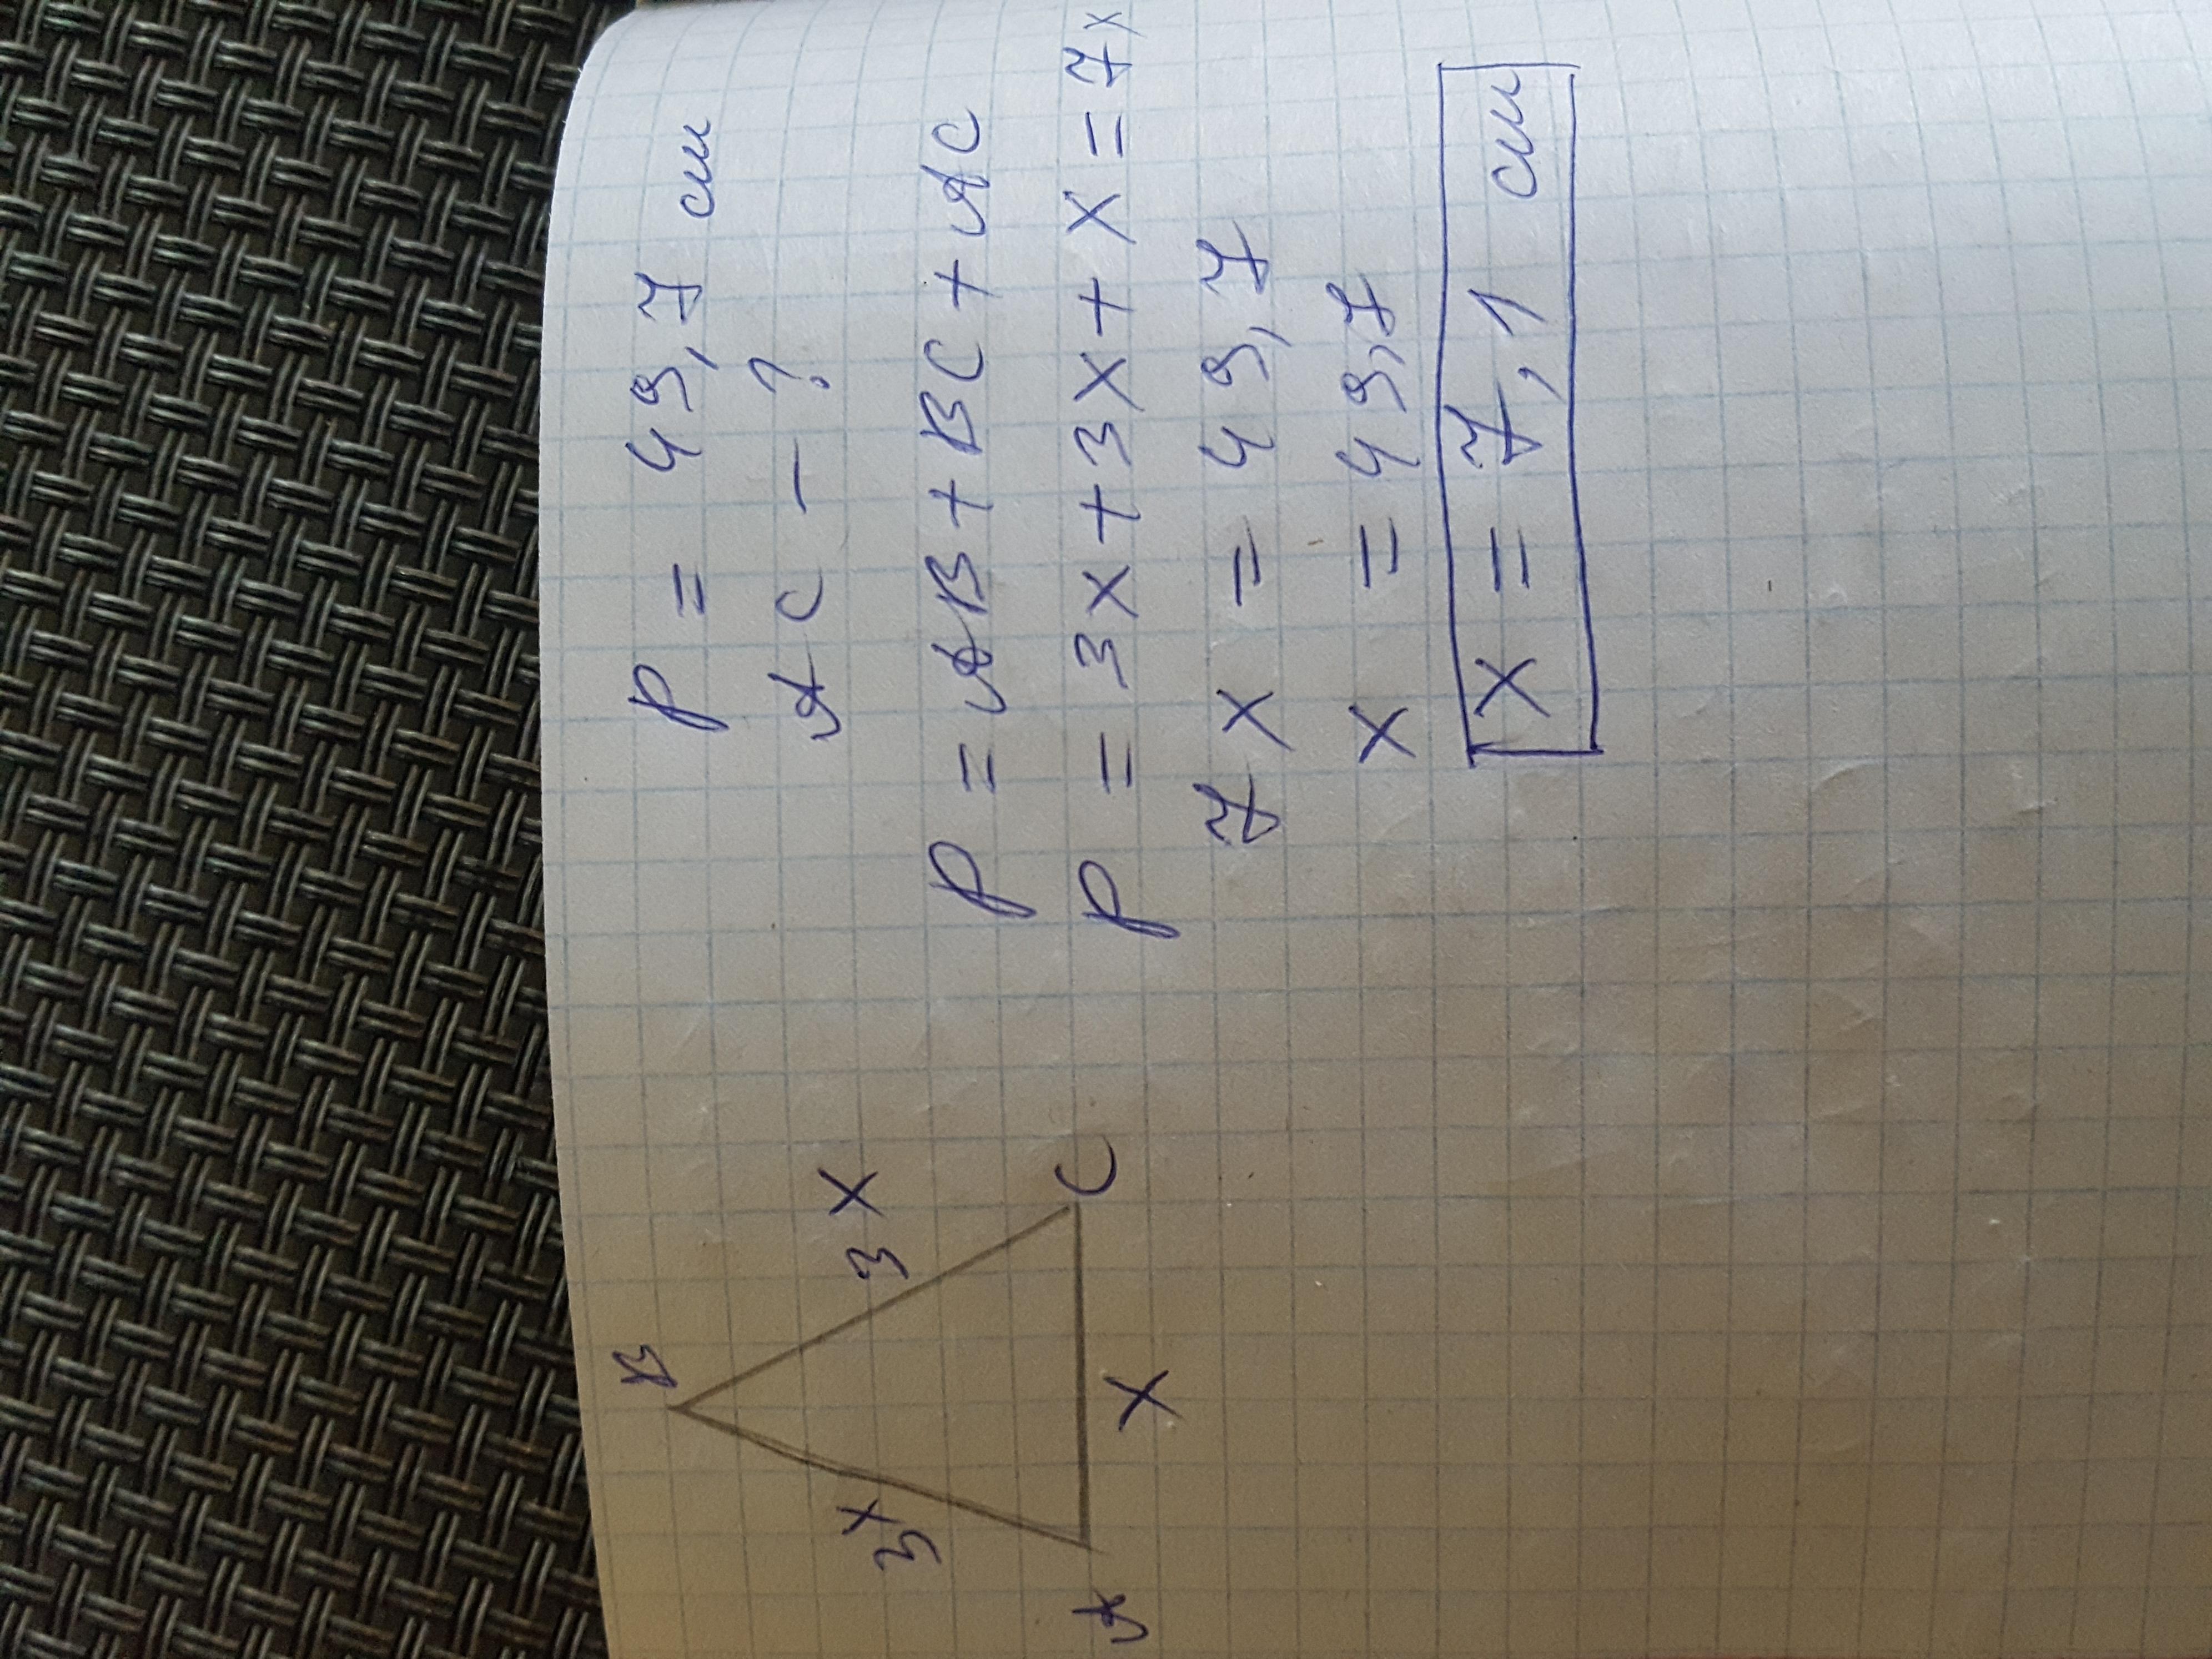 B
3x
3x
A
x
C
P = 49,7 см
AC - ?
P = AB + BC + AC
P = 3x + 3x + x = 7x
7x = 49,7
x = 49,7
x = 7,1 см